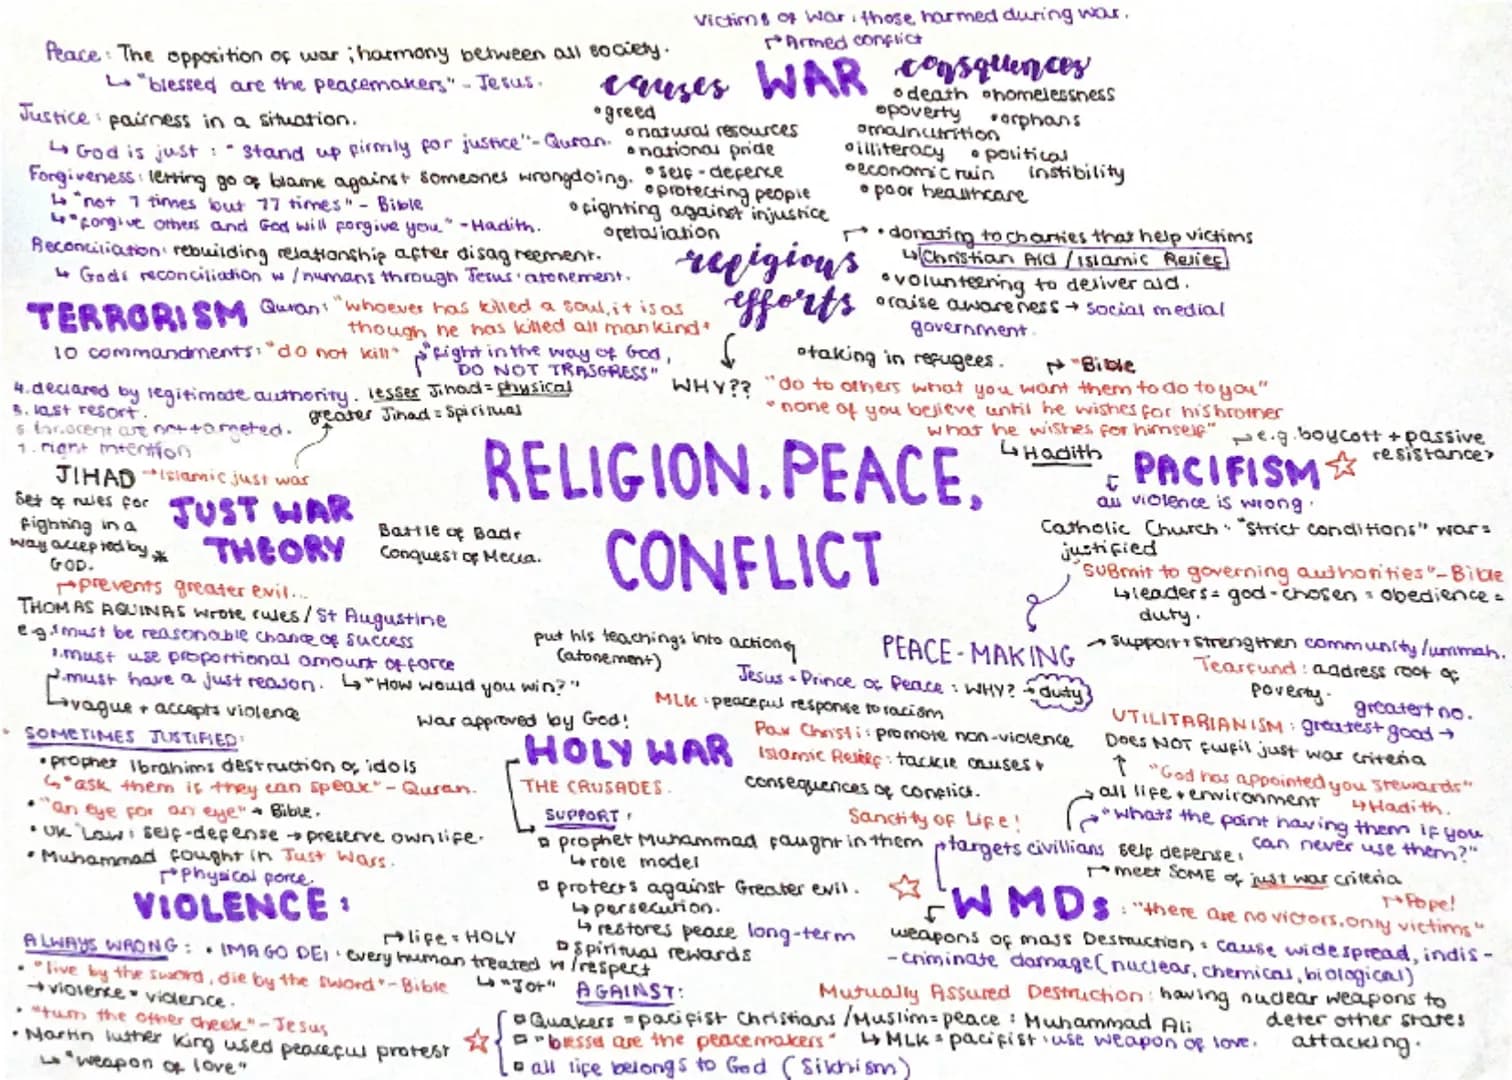 victims of war : those harmed during war.
Peace : The opposition of war ; harmony between all society.
↳ "blessed are the peacemakers" - Jesus.
Justice : fairness in a situation.
↳ God is just : "Stand up firmly for justice" - Quran.
Forgiveness : letting go of blame against someones wrongdoing.
↳ "not 7 times but 77 times" - Bible
↳ "forgive others and God will forgive you" - Hadith.
Reconciliation : rebuilding relationship after disagreement.
↳ Gods reconciliation w/humans through Jesus' atonement.
→ Armed conflict
WAR
causes
• greed
• natural resources
• national pride
• self-defence
• protecting people
• fighting against injustice
• retaliation
consquences
• death • homelessness
• poverty • orphans
• malnutrition
• illiteracy • political
instibility
• economic ruin
• poor healthcare
religious
efforts
→ • donating to charties that help victims
↳ Christian Aid / Islamic Relief
• volunteering to deliver aid.
• raise awareness → social medial
government.
• taking in refugees.
WHY??
→ "Bible
"do to others what you want them to do to you"
"none of you believe until he wishes for his brother
what he wishes for himself"
↳ Hadith
TERRORISM
Quran: "whoever has killed a soul, it is as
though he has killed all mankind"
10 commandments : "do not kill"
"fight in the way of God,
DO NOT TRASGRESS"
lesser Jihad = physical
greater Jihad = Spiritual
4. declared by legitimate authority.
5. last resort.
6 innocent are not targeted.
7. right intention
JIHAD → Islamic just war
Set of rules for
fighting in a
way accepted by
GOD.
JUST WAR
THEORY
Battle of Badr
Conquest of Mecca.
→ prevents greater evil...
THOMAS AQUINAS wrote rules / St Augustine
e.g. must be reasonable chance of success
must use proportional amount of force
must have a just reason. ↳ "How would you win?"
↳ vague + accepts violence
RELIGION, PEACE,
CONFLICT
→ e.g. boycott + passive
resistance
PACIFISM ☆
all violence is wrong.
Catholic Church : "Strict conditions" war =
justified
"submit to governing authorities" - Bible
↳ leaders = god-chosen = obedience =
duty.
PEACE-MAKING
→ support + strengthen community / ummah.
Tearfund : address root of
poverty.
put his teachings into action
(atonement)
Jesus = Prince of Peace : WHY? → duty
MLK : peaceful response to racism
Pax Christi : promote non-violence
Islamic Relief : tackle causes +
consequences of conflict.
greatest no.
UTILITARIANISM : greatest good →
Does NOT fulfil just war criteria
"God has appointed you stewards"
↳ Hadith.
→ all life + environment
"whats the point having them if you
can never use them?"
SOMETIMES JUSTIFIED:
• prophet Ibrahims destruction of idols
↳ "ask them if they can speak" - Quran.
• "an eye for an eye" → Bible.
• UK Law : self-defense → preserve own life.
• Muhammad fought in Just Wars.
→ Physical force.
VIOLENCE :
ALWAYS WRONG : • IMAGO DEI : every human treated w/respect
→ life = HOLY
• "live by the sword, die by the sword" - Bible
→ violence = violence.
• "turn the other cheek" - Jesus
• Martin luther King used peaceful protest
↳ "weapon of love"
War approved by God!
HOLY WAR
THE CRUSADES.
SUPPORT :
prophet Muhammad faught in them
↳ role model
protects against Greater evil.
↳ persecution.
↳ restores peace long-term
spiritual rewards
AGAINST:
Quakers = pacifist Christians / Muslim = peace : Muhammad Ali
"blessed are the peacemakers" ↳ MLK = pacifist : use weapon of love.
all life belongs to God (Sikhism)
Sanctity of Life!
targets civillians
self defense,
→ meet SOME of just war criteria
→ Pope!
☆ WMDs : "there are no victors, only victims"
weapons of mass Destruction : cause widespread, indis-
-criminate damage (nuclear, chemical, biological)
Mutually Assured Destruction : having nuclear weapons to
deter other states
attacking.